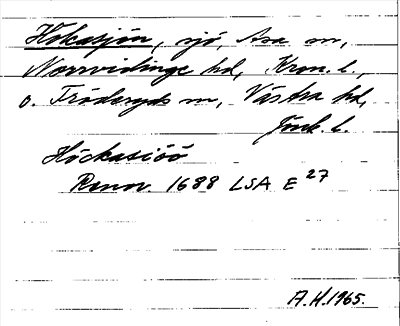 Hökasjön, sjö, Asa sn,
Norrvidinge hd, Kron. l.,
o. Fröderyds sn, Västra hd,
Jönk. l.
Höckasiöö
Rannr. 1688 LSA E 27
A.H. 1965.